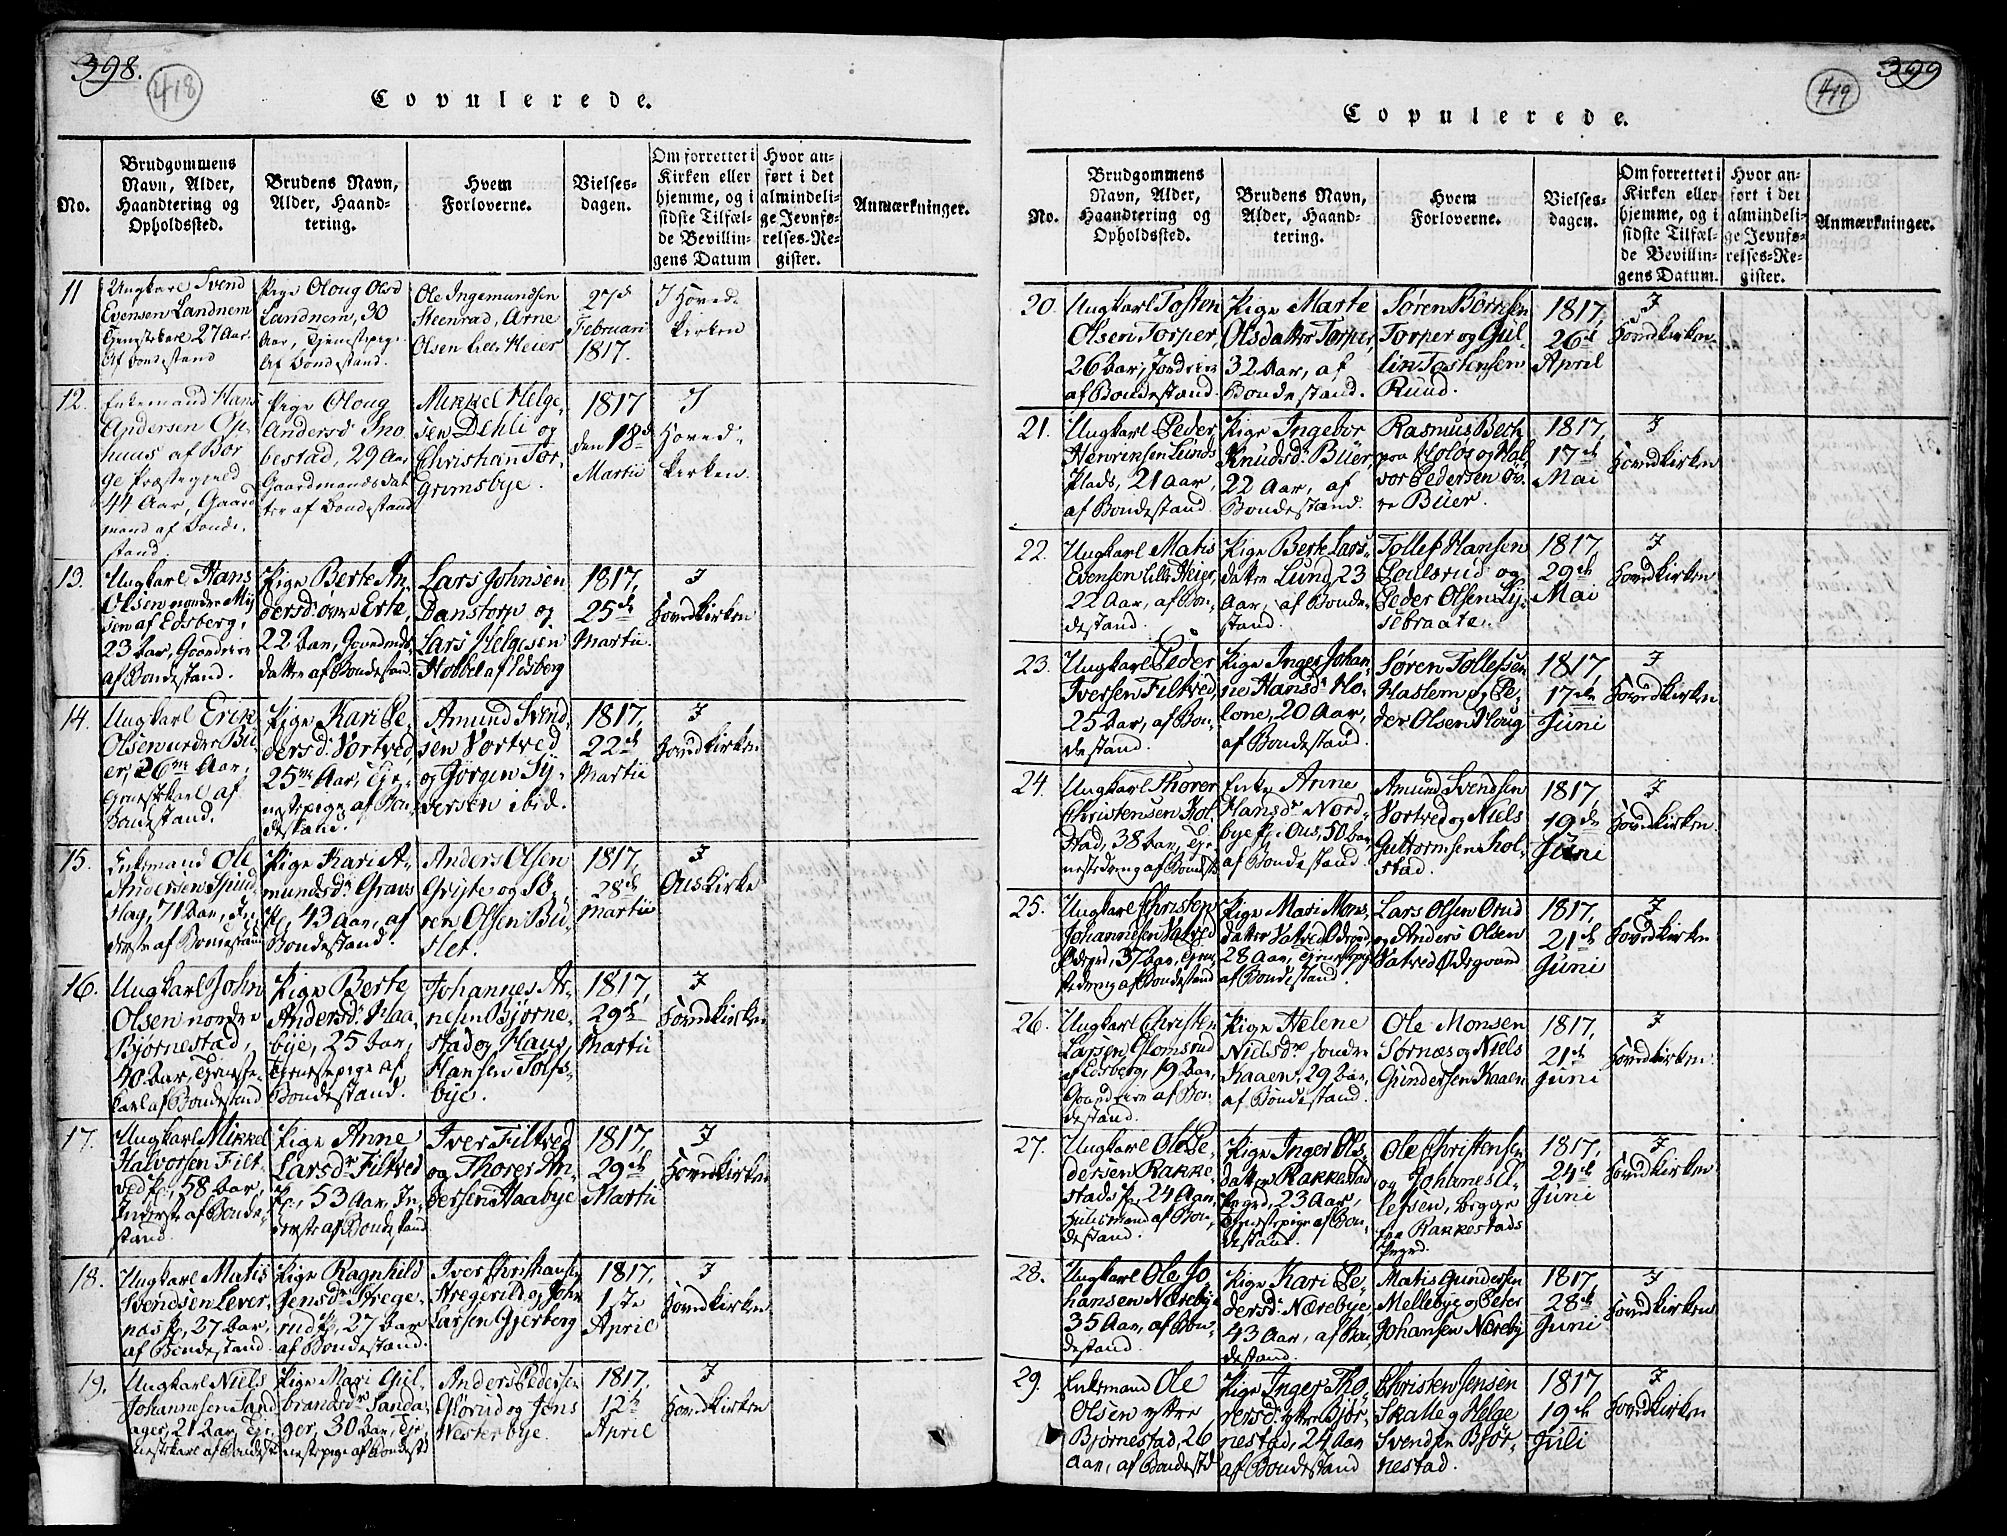 398.
418
Copulerede.
No.
Brudgommens
Navn, Alder,
Haandtering og
Opholdssted.
Brudens Navn,
Alder, Haand-
tering.
Hvem
Forloverne.
Vielses-
dagen.
Om forrettet i
Kirken eller
hjemme, og i
sidste Tilfæl-
de Bevillin-
gens Datum
Hvor an-
ført i det
almindeli-
ge Jevnfø-
relses-Re-
gister.
Anmærkninger.
11
Ungkarl Svend
Evensen Landnem
Tjenestekarl 27 Aar
Af Bondestand
Pige Oloug Olsd
Landnem, 30
Aar, Tjenestepige
Af Bondestand.
Ole Ingemundsen
Steenrad, Arne
Olsen Lille Heier
27d
Februari
1817.
I Hoved-
kirken
12.
Enkemand Hans
Andersen Op-
huus af Bor
ge Præstegjeld
44 Aar, Gaard
mand af Bonde-
stand.
Pige Oloug
Andersd
bestad, 29 Aar
Gaardmandsdat
ter af Bondestand
Mikkel Helge-
sen Dehli og
Christian Tor-
grimsbye.
1817
den 18d
Martii
I
Hoved-
kirken.
13.
Ungkarl Hans
Olsen nordre Mÿ
sen af Edsberg,
23 Aar,
af Bondestand.
Pige Berte An-
dersd. øvre Erte,
22 Aar,
Datter af Bondestand
Lars Johnsen
Danstorp og
Lars Helgesen
Hobbel af Edsberg
1817,
25de
Martii
I
Hovedkirken
14.
Ungkarl Erik
Olsen nedre Bü-
er, 26 Aar,
Tjenestekarl af
Bondestand.
Pige Kari Pe-
dersd. Vortved
25 Aar, Tje-
nestepige af Bon-
destand.
Amund Svend-
sen Vortved
og Jörgen Sÿ-
versen ibid.
1817,
22de
Martii
I
Hovedkirken
15.
Enkemand Ole
Andersen Spind
flag, 71 Aar, In-
derste af Bondestand
Pige Kari A-
mundsdr Gravs
Pl, 43 Aar, af
Bondestand.
Anders Olsen
Grÿte og Sö-
ren Olsen Bü-
slet.
1817,
28de
Martii
I
Ous Kirke
16.
Ungkarl John
Olsen nordre
Bjørnestad,
40 Aar, Tjeneste-
karl af Bondestand
Pige Berte
Andersd. Haa-
bÿe, 25 Aar,
Tjenestepige af
Bondestand.
Johannes Ar-
nesen Bjørne-
stad og Hans
Hansen Tosse-
bÿe.
1817,
29de
Martii
I
Hovedkirken
17.
Ungkarl Mikkel
Halvorsen Filt-
ved Pl, 58 Aar,
Inderste af Bonde-
stand.
Pige Anne
Larsdr Filtved
Pl, 53 Aar, In-
derste af Bondestand
Iver Filtved
og Thorer An-
dersen Haabÿe
1817,
29de
Martii
I
Hovedkirken
18.
Ungkarl Matis
Svendsen Lever-
næs Pl, 27 Aar,
af Bondestand.
Pige Ragnhild
Jensdr Strege-
rud Pl, 27 Aar
af Bondestand.
Iver Christiansen
Stregerud og John
Larsen Gjerberg
1817,
1ste
April
I
Hovedkirken
19.
Ungkarl Niels
Johannesen Sand
ager, 21 Aar, Tje-
nestekarl af Bondestd
Pige Mari Gul-
brandsdr Sanda-
ger, 30 Aar, Tje-
nestepige af Bondestd
Anders Pedersen
Glörud og Jöns
Westerbÿe.
1817,
12te
April
I
Hovedkirken
399
419
Copulerede.
No.
Brudgommens
Navn, Alder,
Haandtering og
Opholdssted.
Brudens Navn,
Alder, Haand-
tering.
Hvem
Forloverne.
Vielses-
dagen.
Om forrettet i
Kirken eller
hjemme, og i
sidste Tilfæl-
de Bevillin-
gens Datum.
Hvor an-
ført i det
almindeli-
ge Jevnfø-
relses-Re-
gister.
Anmærkninger.
20.
Ungkarl Tosten
Olsen Torper,
26 Aar,
af Bondestand.
Pige Marte
Olsdatter Torper,
32 Aar, af
Bondestand.
Søren Börresen
Torper og Gul-
lin Tostensen
Ruud.
1817,
26de
April
I
Hovedkirken
21.
Ungkarl Peder
Henriksen Lunds
Plads, 21 Aar,
af Bondestand.
Pige Ingebor
Knudsd. Büer,
22 Aar, af
Bondestand.
Rasmus Bech
paa Holög og Hal-
vor Pedersen öv-
re Büer.
1817,
17de
Mai
I
Hovedkirken
22.
Ungkarl Matis
Evensen Lille Heier,
22 Aar, af Bon-
destand.
Pige Berte Lars-
datter Lund, 23
Aar, af Bonde-
stand.
Tollef Hansen
Poulsrud og
Peder Olsen Lÿ-
sebraate.
1817,
29de
Mai
I
Hovedkirken
23.
Ungkarl Peder
Iversen Filtved,
25 Aar, af Bon-
destand.
Pige Inger Johan-
ne Hansdr Ho-
lone, 20 Aar,
af Bondestand.
Søren Tollefsen
Haslem og Pe-
der Olsen Houg
1817,
17de
Juni
I
Hovedkirken
24.
Ungkarl Thorer
Christensen Kol-
stad, 38 Aar, Tje-
nestedreng af Bondestd
Enke Anne
Hansdr Nord-
bye Pl. i Ous, 50 Aar
af Bondestand.
Amund Svendsen
Vortved og Niels
Guttormsen Kol-
stad.
1817,
19de
Juni
I
Hovedkirken
25.
Ungkarl Christen
Johannesen Vatved
Ødegd, 37 Aar, Tjene-
stedreng af Bondestand
Pige Mari Mons-
datter Vatved Ødegd,
28 Aar, Tjenestepige
af Bondestand.
Lars Olsen Orud
og Anders Olsen
Vatved Ødegaard
1817,
21de
Juni
I
Hovedkirken
26.
Ungkarl Christen
Larsen Glomsrud
af Edsberg, 19 Aar,
af Bon-
destand.
Pige Helene
Nielsdr søndre
Kaaen, 29 Aar,
af Bondestand.
Ole Monsen
Sørnæs og Niels
Gundersen Kaaen
1817,
21de
Juni
I
Hovedkirken
27.
Ungkarl Ole Pe-
dersen Rakke-
stads Pr, 24 Aar,
Huusmand af Bon-
destand.
Pige Inger Ols-
datter Rakkestad
Prægd, 23 Aar,
Tjenestepige af Bon-
destand.
Ole Christensen
og Johanes E-
lefsen, begge
fra Rakkestads
Prægd.
1817,
24de
Juni
I
Hovedkirken
28.
Ungkarl Ole Jo-
hansen Nærebÿe
35 Aar, af Bon-
destand.
Pige Kari Pe-
dersd. Nærebÿe,
43 Aar, af Bon-
destand.
Matis Gundersen
Mellebÿe og Peter
Johansen Nærebÿ
1817,
28de
Juni
I
Hovedkirken
29.
Enkemand Ole
Olsen ÿttre
Bjørnestad, 26
Aar, af Bondestd
Pige Inger Tho-
rersd. ÿttre Bjør-
nestad, 24 Aar
af Bondestand
Christen Jensen
Skalle og Helge
Svendsen Bjør-
nestad.
1817
19de
Juli
I
Hovedkirken